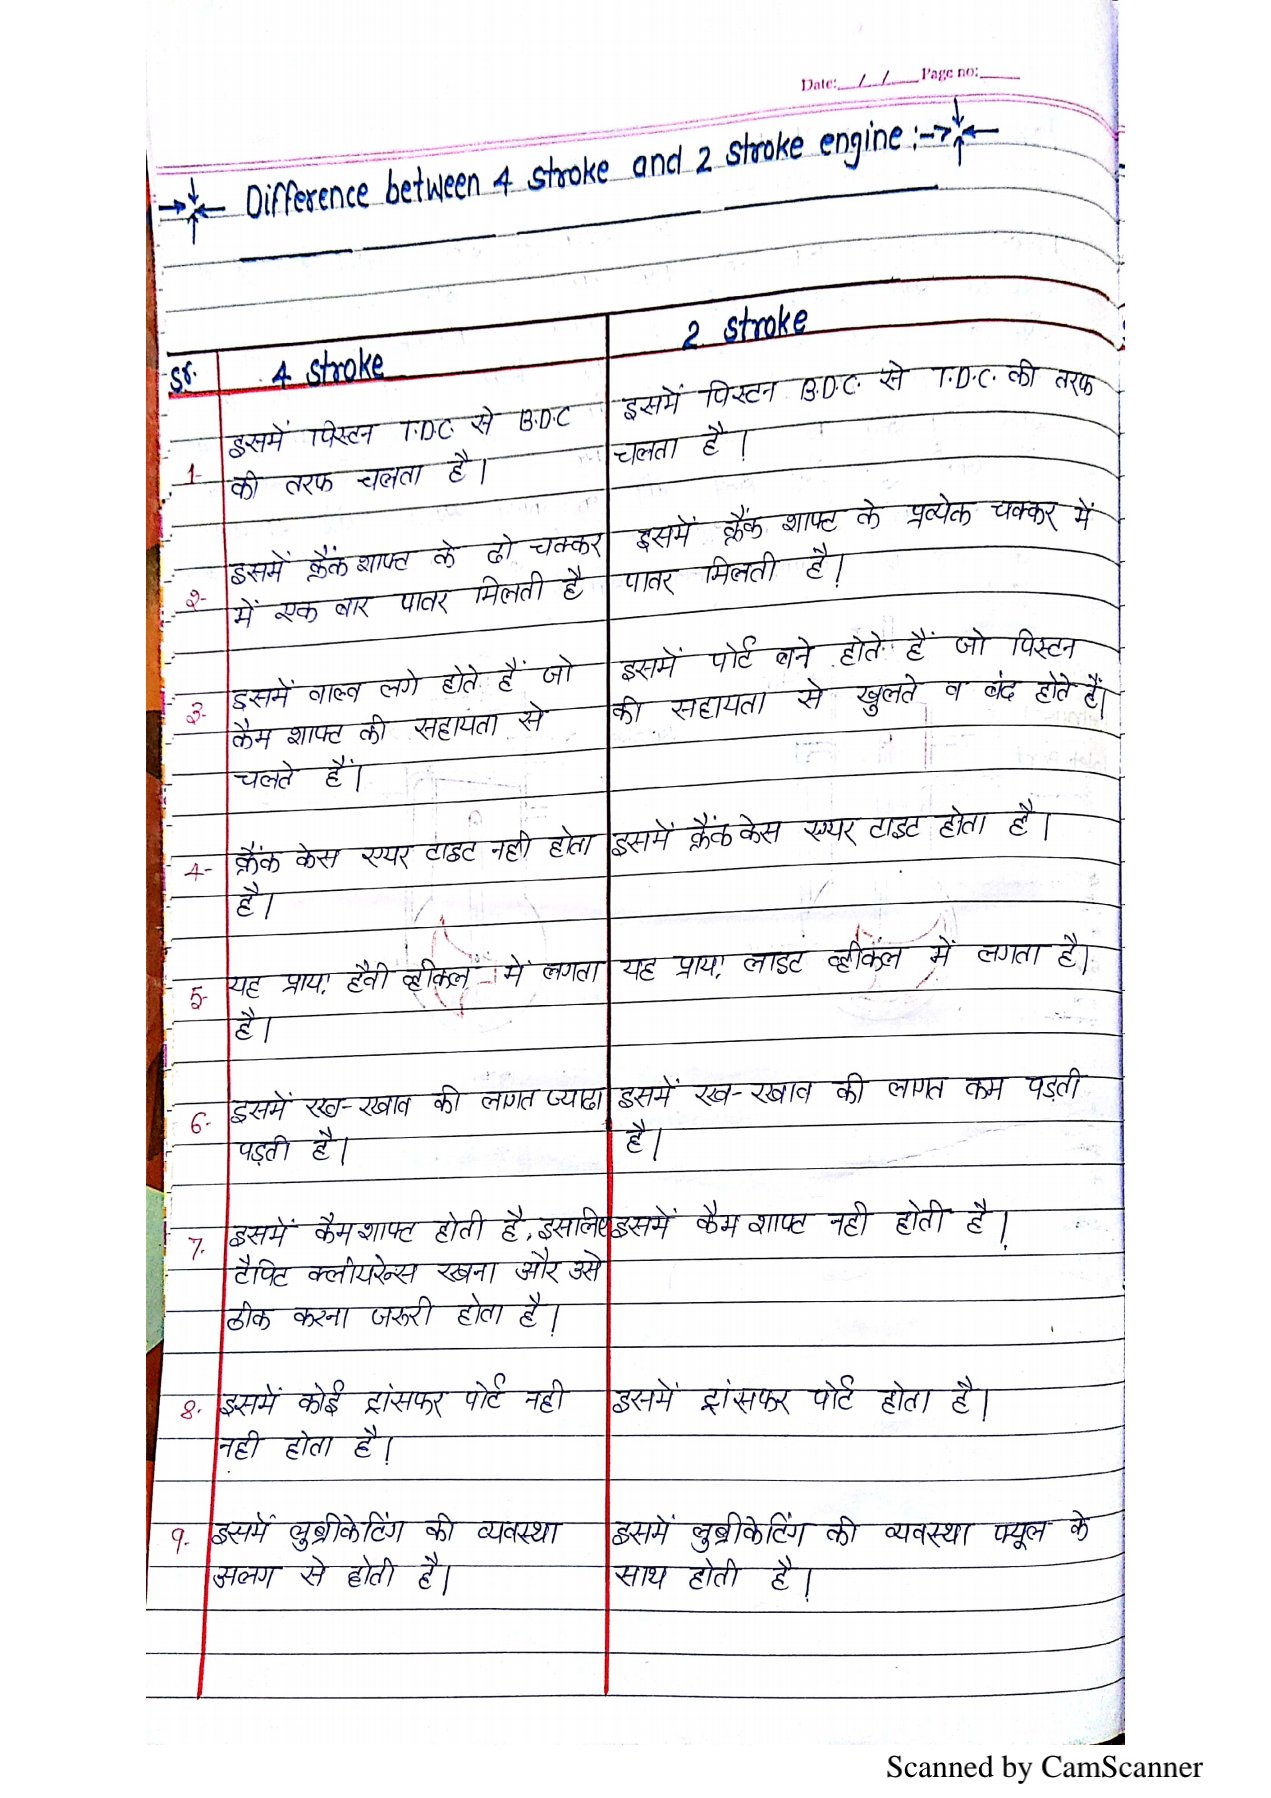 Date: __/__/__ Page no: ____
Difference between 4 stroke and 2 stroke engine :-
Sr. 4 stroke 2 stroke
1- इसमें पिस्टन T.D.C. से B.D.C
की तरफ चलता है।
इसमें पिस्टन B.D.C. से T.D.C. की तरफ
चलता है।
2- इसमें क्रैंक शाफ्ट के दो चक्कर
में एक बार पावर मिलती है
इसमें क्रैंक शाफ्ट के प्रत्येक चक्कर में
पावर मिलती है।
3- इसमें वाल्व लगे होते हैं जो
कैम शाफ्ट की सहायता से
चलते हैं।
इसमें पोर्ट बने होते हैं जो पिस्टन
की सहायता से खुलते व बंद होते हैं।
4- क्रैंक केस एयर टाइट नही होता
है।
इसमें क्रैंक केस एयर टाइट होता है।
5- यह प्राय: हैवी व्हीकल में लगता
है।
यह प्राय: लाइट व्हीकल में लगता है।
6- इसमें रख-रखाव की लागत ज्यादा
पड़ती है।
इसमें रख-रखाव की लागत कम पड़ती
है।
7. इसमें कैम शाफ्ट होती है, इसलिए
टैपिट क्लीयरेन्स रखना और उसे
ठीक करना जरूरी होता है।
इसमें कैम शाफ्ट नही होती है।
8. इसमें कोई ट्रांसफर पोर्ट नही
नही होता है।
इसमें ट्रांसफर पोर्ट होता है।
9. इसमें लुब्रीकेटिंग की व्यवस्था
अलग से होती है।
इसमें लुब्रीकेटिंग की व्यवस्था फ्यूल के
साथ होती है।
Scanned by CamScanner